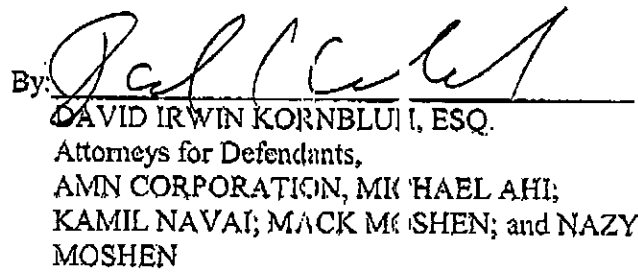 By:
DAVID IRWIN KORNBLUH, ESQ.
Attorneys for Defendants,
AMN CORPORATION, MICHAEL AHI;
KAMIL NAVAI; MACK MOSHEN; and NAZY
MOSHEN